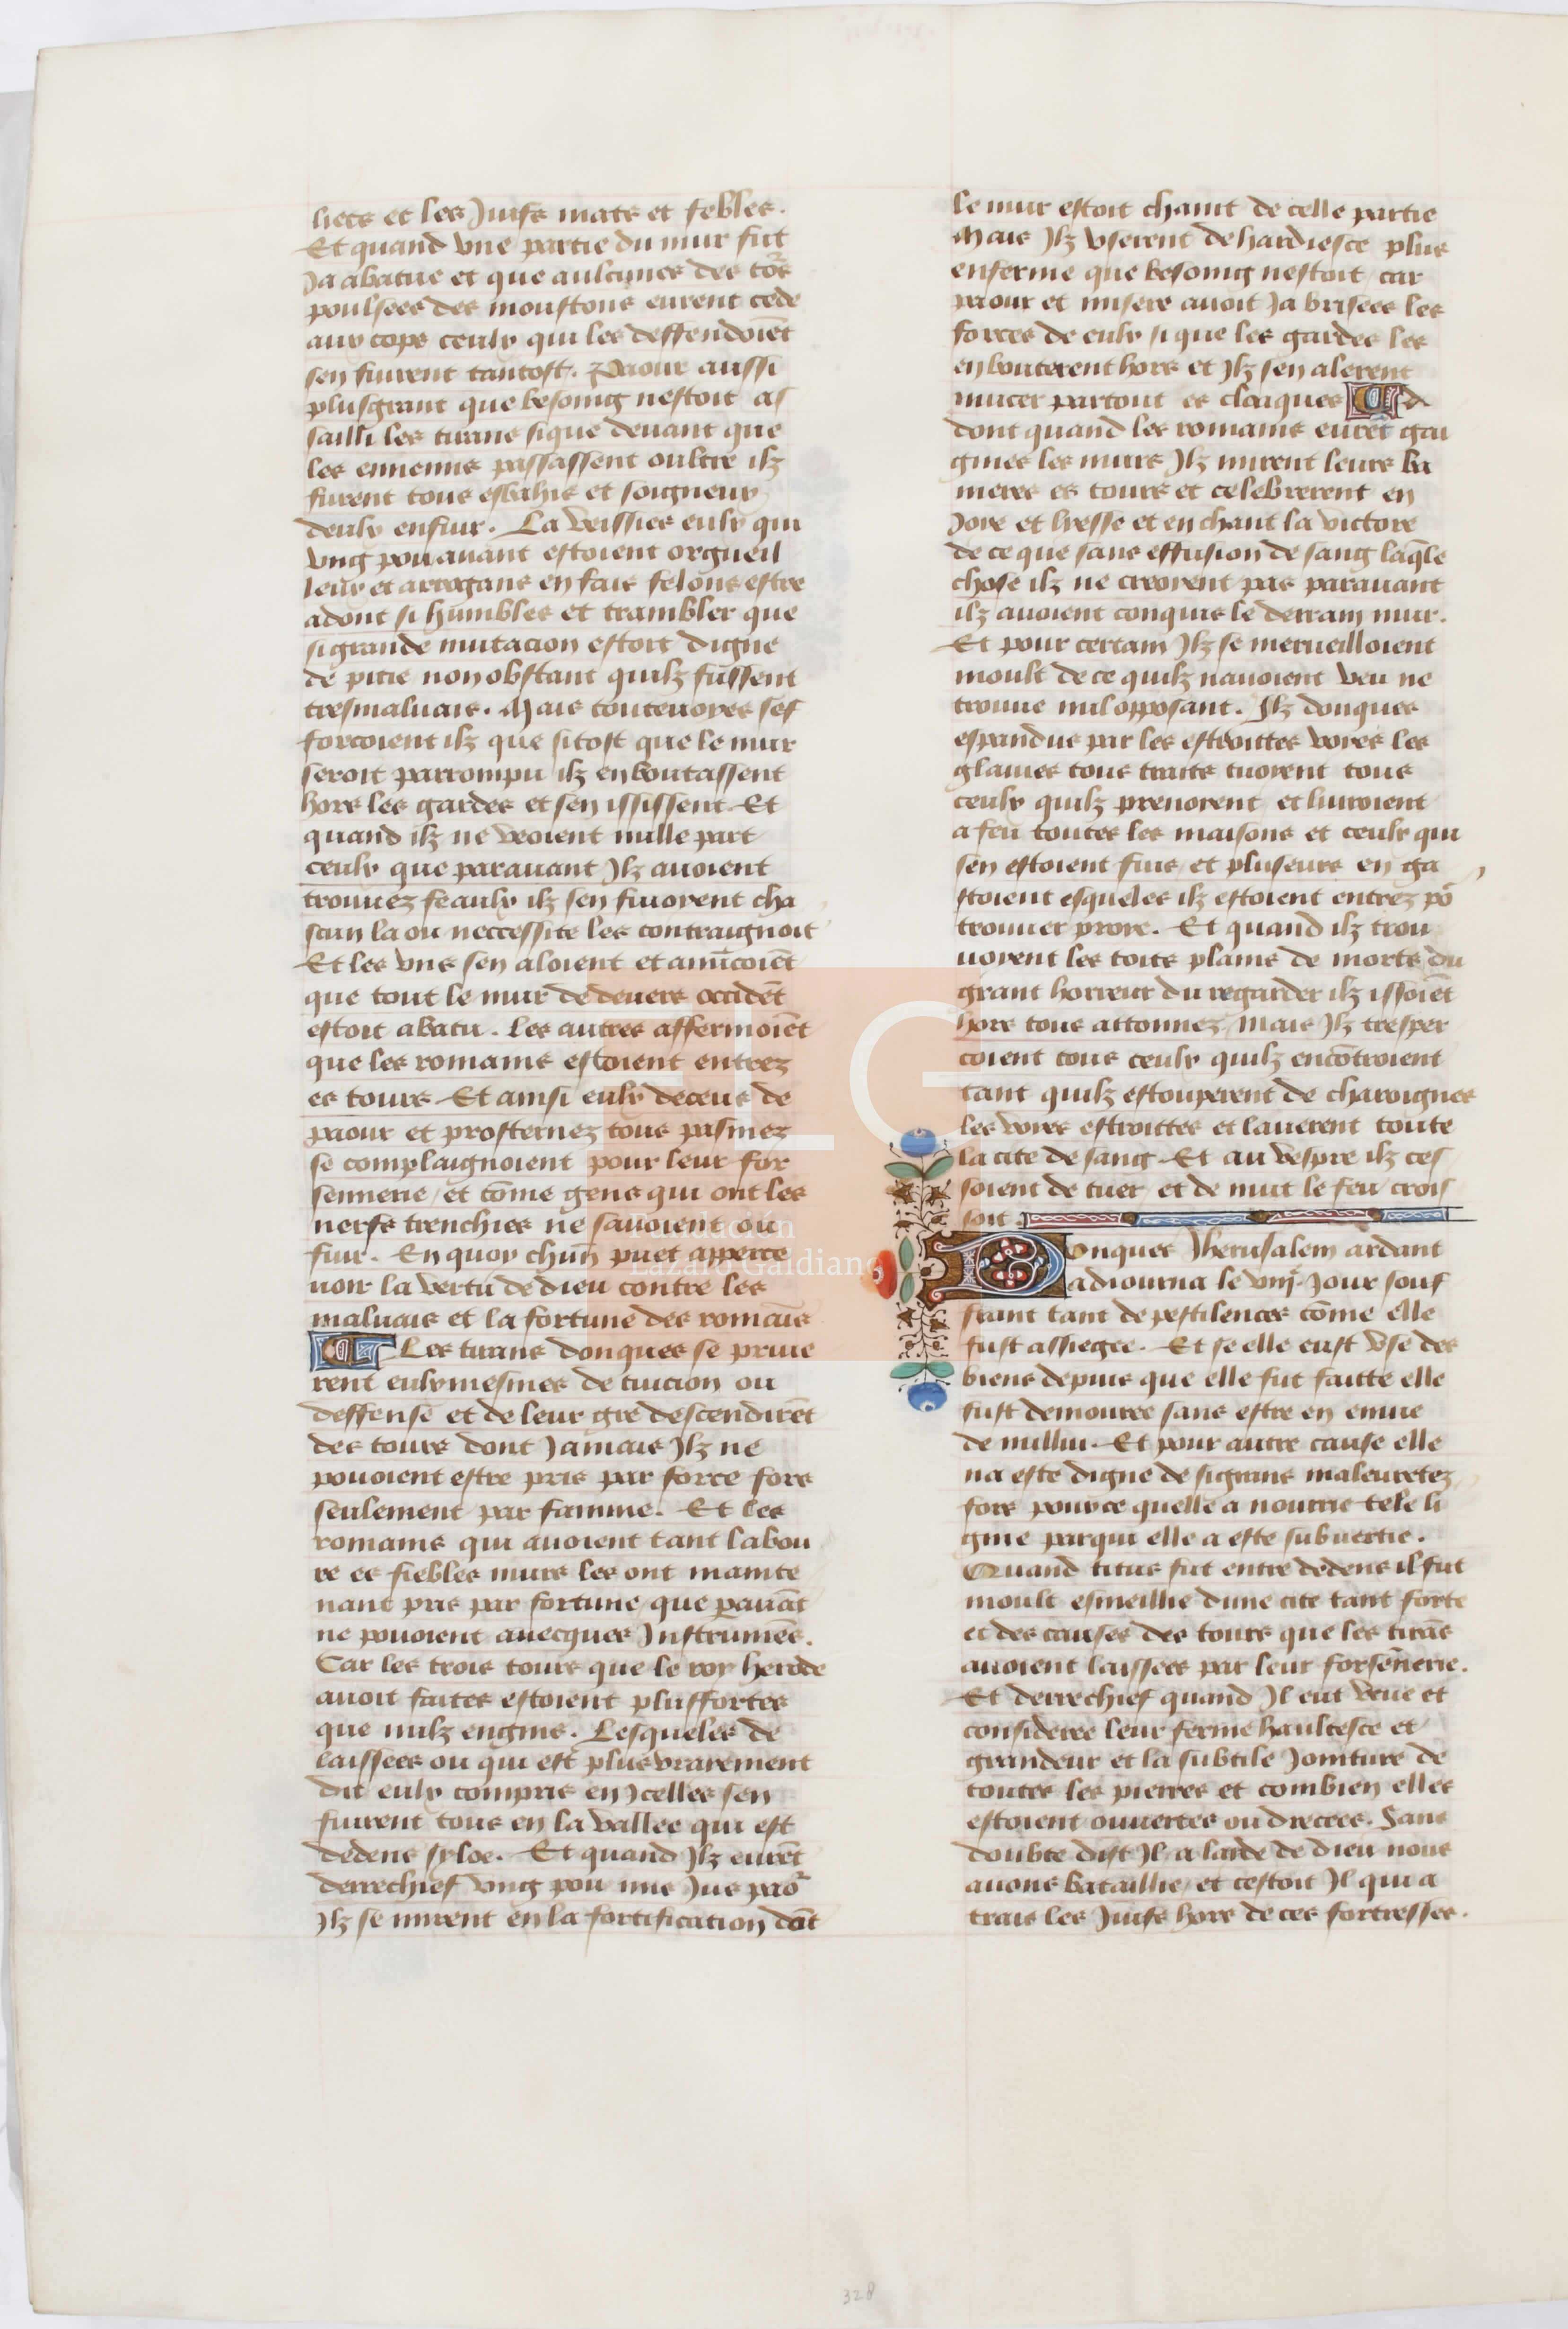 liers et les Juifs mats et febles.
Et quand vne partie du mur fut
Ja abatue et que aulcunes des to͛s
poulsees des moustons eurent cede
aux cops ceulx qui les deffendoiēt
sen fuirent tantost. Paour aussi
plusgrant que besoing nestoit as
sailli les tirans sique deuant que
les ennemis passassent oultre ilz
furent tous esbahis et soigneux
deulx enfuir. La veissies eulx qui
vng pou auant estoient orgueil
leux et arrogans en fais felons estre
adont si humbles et trambler que
sigrande mutacion estoit digne
de pitie non obstant quilz fussent
tresmaluais. Mais touteuoyes sef
forcoient ilz que sitost que le mur
seroit parrompu ilz enboutassent
hors les gardes et sen ississent. Et
quand ilz ne veoient nulle part
ceulx que parauant Ilz auoient
trouuez feaulx ilz sen fuioyent cha
scun la ou neccessite les contraignoit
Et les vns sen aloient et anūcoiēt
que tout le mur de deuers occidēt
estoit abatu. les autres affermoiēt
que les romains estoient entrez
es tours. Et ainsi eulx deceus de
paour et prosternez tous pasmez
se complaignoient pour leur for
sennerie / et cōme gens qui ont les
nerfs trenchies ne sauoient ou
fuir. En quoy chūn puet apperce
uoir la vertu de dieu contre les
maluais et la fortune des romaīs
Les tirans donques se priue
rent eulxmesmes de tuicion ou
deffense et de leur gre descendirēt
des tours dont Jamais Ilz ne
pouoient estre pris par force fors
seulement par famine. Et les
romains qui auoient tant labou
re es fiebles murs les ont mainte
nant pris par fortune / que ꝑauāt
ne pouoient auecques Instrumēs.
Car les trois tours que le roy herode
auoit faites estoient plusfortes
que nulz engins. Lesqueles de
laissees ou qui est plus vrayement
dit eulx compris en Icelles sen
fuirent tous en la vallee qui est
dedens syloe. Et quand Ilz eurēt
derrechief vng pou mis Jus pao͛
Ilz se mirent en la fortification dōt
le mur estoit chaint de celle partie
Mais Ilz vserent de hardiesce plus
enferme que besoing nestoit / car
paour et misere auoit Ja brisees les
forces de eulx si que les gardes les
enbouterent hors et Ilz sen alerent
mucer partout es cloaques A
dont quand les romains eurēt gai
gnies les murs Ilz mirent leurs ba
nieres es tours et celebrerent en
Joye et liesse et en chant la victore
de ce que sans effusion de sang laq̄le
chose ilz ne creoyent pas parauant
ilz auoient conquis le derrain mur.
Et pour certain Ilz se merueilloient
moult de ce quilz nauoient veu ne
trouue nul opposant. Ilz donques
espandus par les estroittes voyes les
glaiues tous traits tuoyent tous
ceulx quilz prenoyent et liuroient
a feu toutes les maisons et ceulx qui
sen estoient fuis / et pluseurs en ga
stoient esqueles ilz estoient entrez po͛
trouuer proye. Et quand ilz trou
uoyent les toits plains de morts du
grant horreur du regarder ilz issoiēt
hors tous attonnez / Mais Ilz tresper
coient tous ceulx quilz encōtroient
tant quilz estouperent de charoignes
les voyes estroittes et lauerent toute
la cite de sang. Et au vespre ilz ces
soient de tuer / et de nuit le feu crois
soit.
Donques Iherusalem ardant
adiourna le viijͤ. Jour souf
frant tant de pestilences cōme elle
fust assiegee. Et se elle eust vse des
biens depuis que elle fut faitte elle
fust demouree sans estre en enuie
de nullui. Et pour autre cause elle
na este digne de sigrans maleuretez
fors pource quelle a nourrie tele li
gnie parqui elle a este subuertie.
Quand titus fut entre dedens il fut
moult esmeillie dune cite tant forte
et des causes des tours que les tirās
auoient laissees par leur forsēnerie.
Et derrechief quand Il eut veue et
consideree leur ferme haultesce et
grandeur et la subtile Jointure de
toutes les pierres et combien elles
estoient ouuertes ou drecees. Sans
doubte dist Il a laide de dieu nous
auons bataillie / et cestoit Il qui a
trais les Juifs hors de ces fortresses.
328
Fundación
Lázaro Galdiano